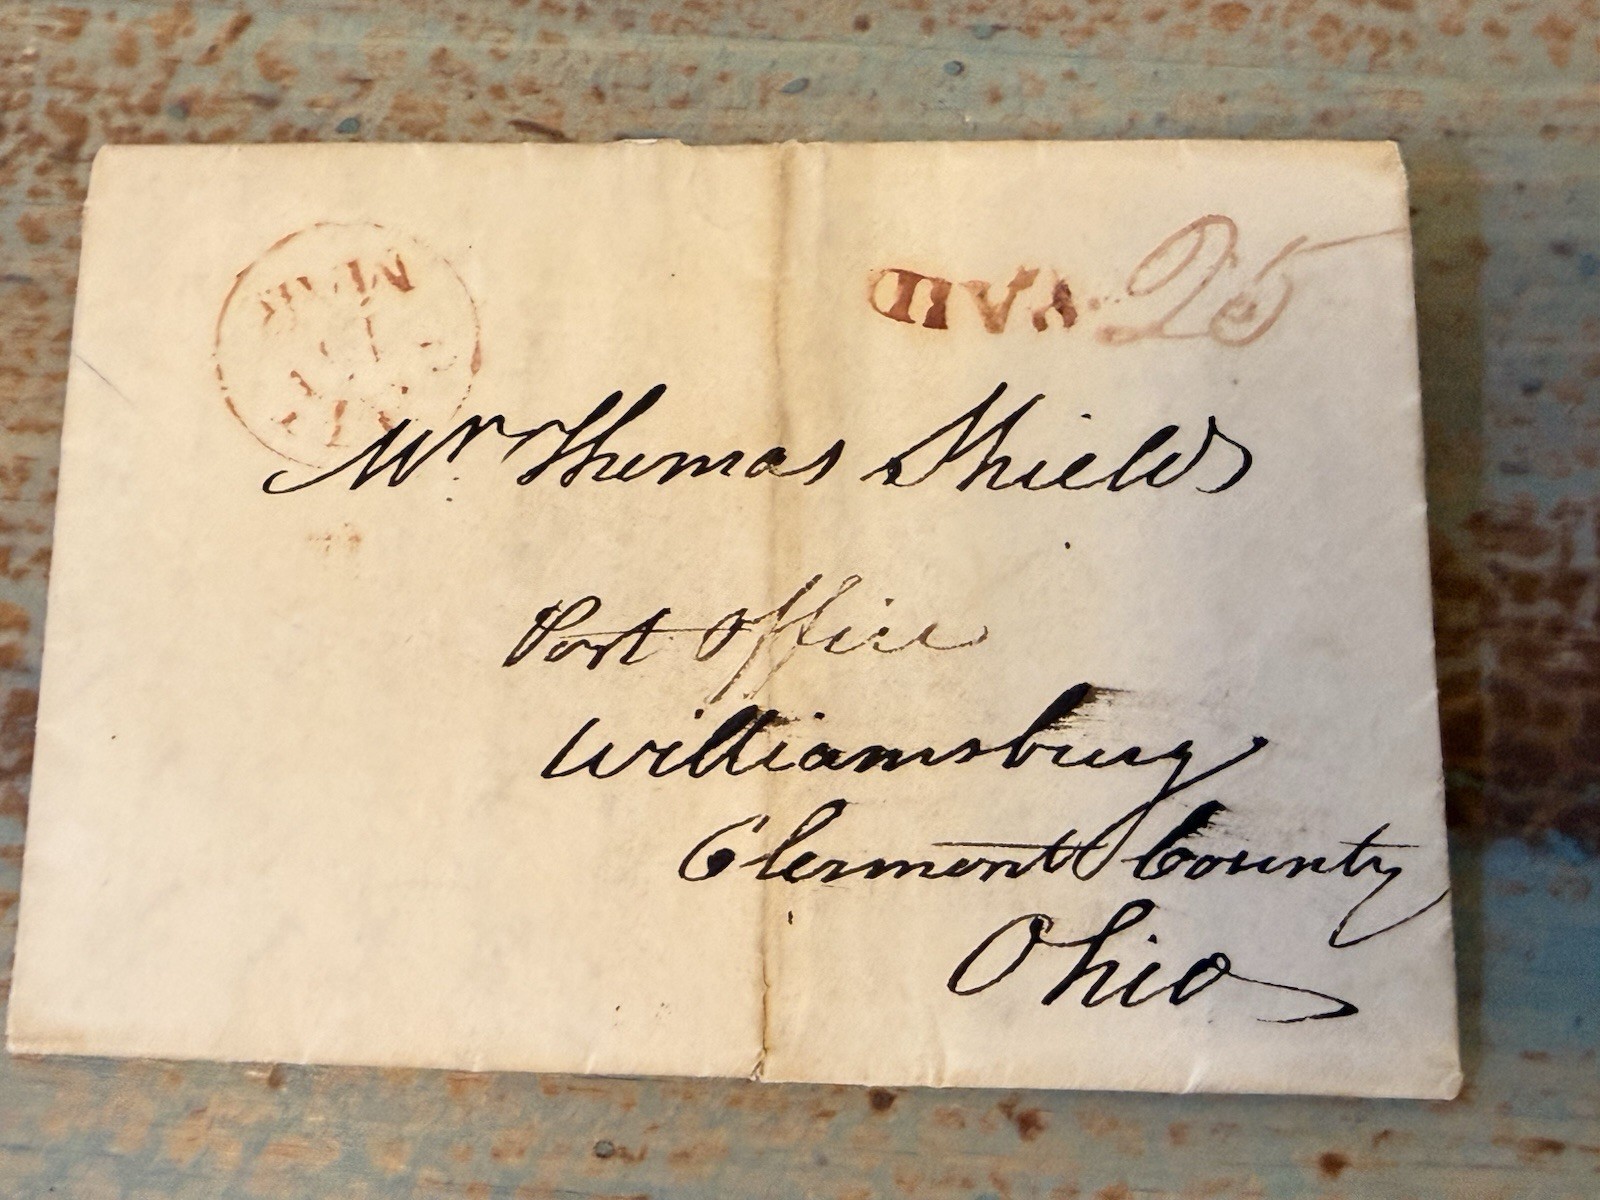 MAR
PAID 25
Mr Thomas Shields
Post Office
Williamsburg
Clermont County
Ohio